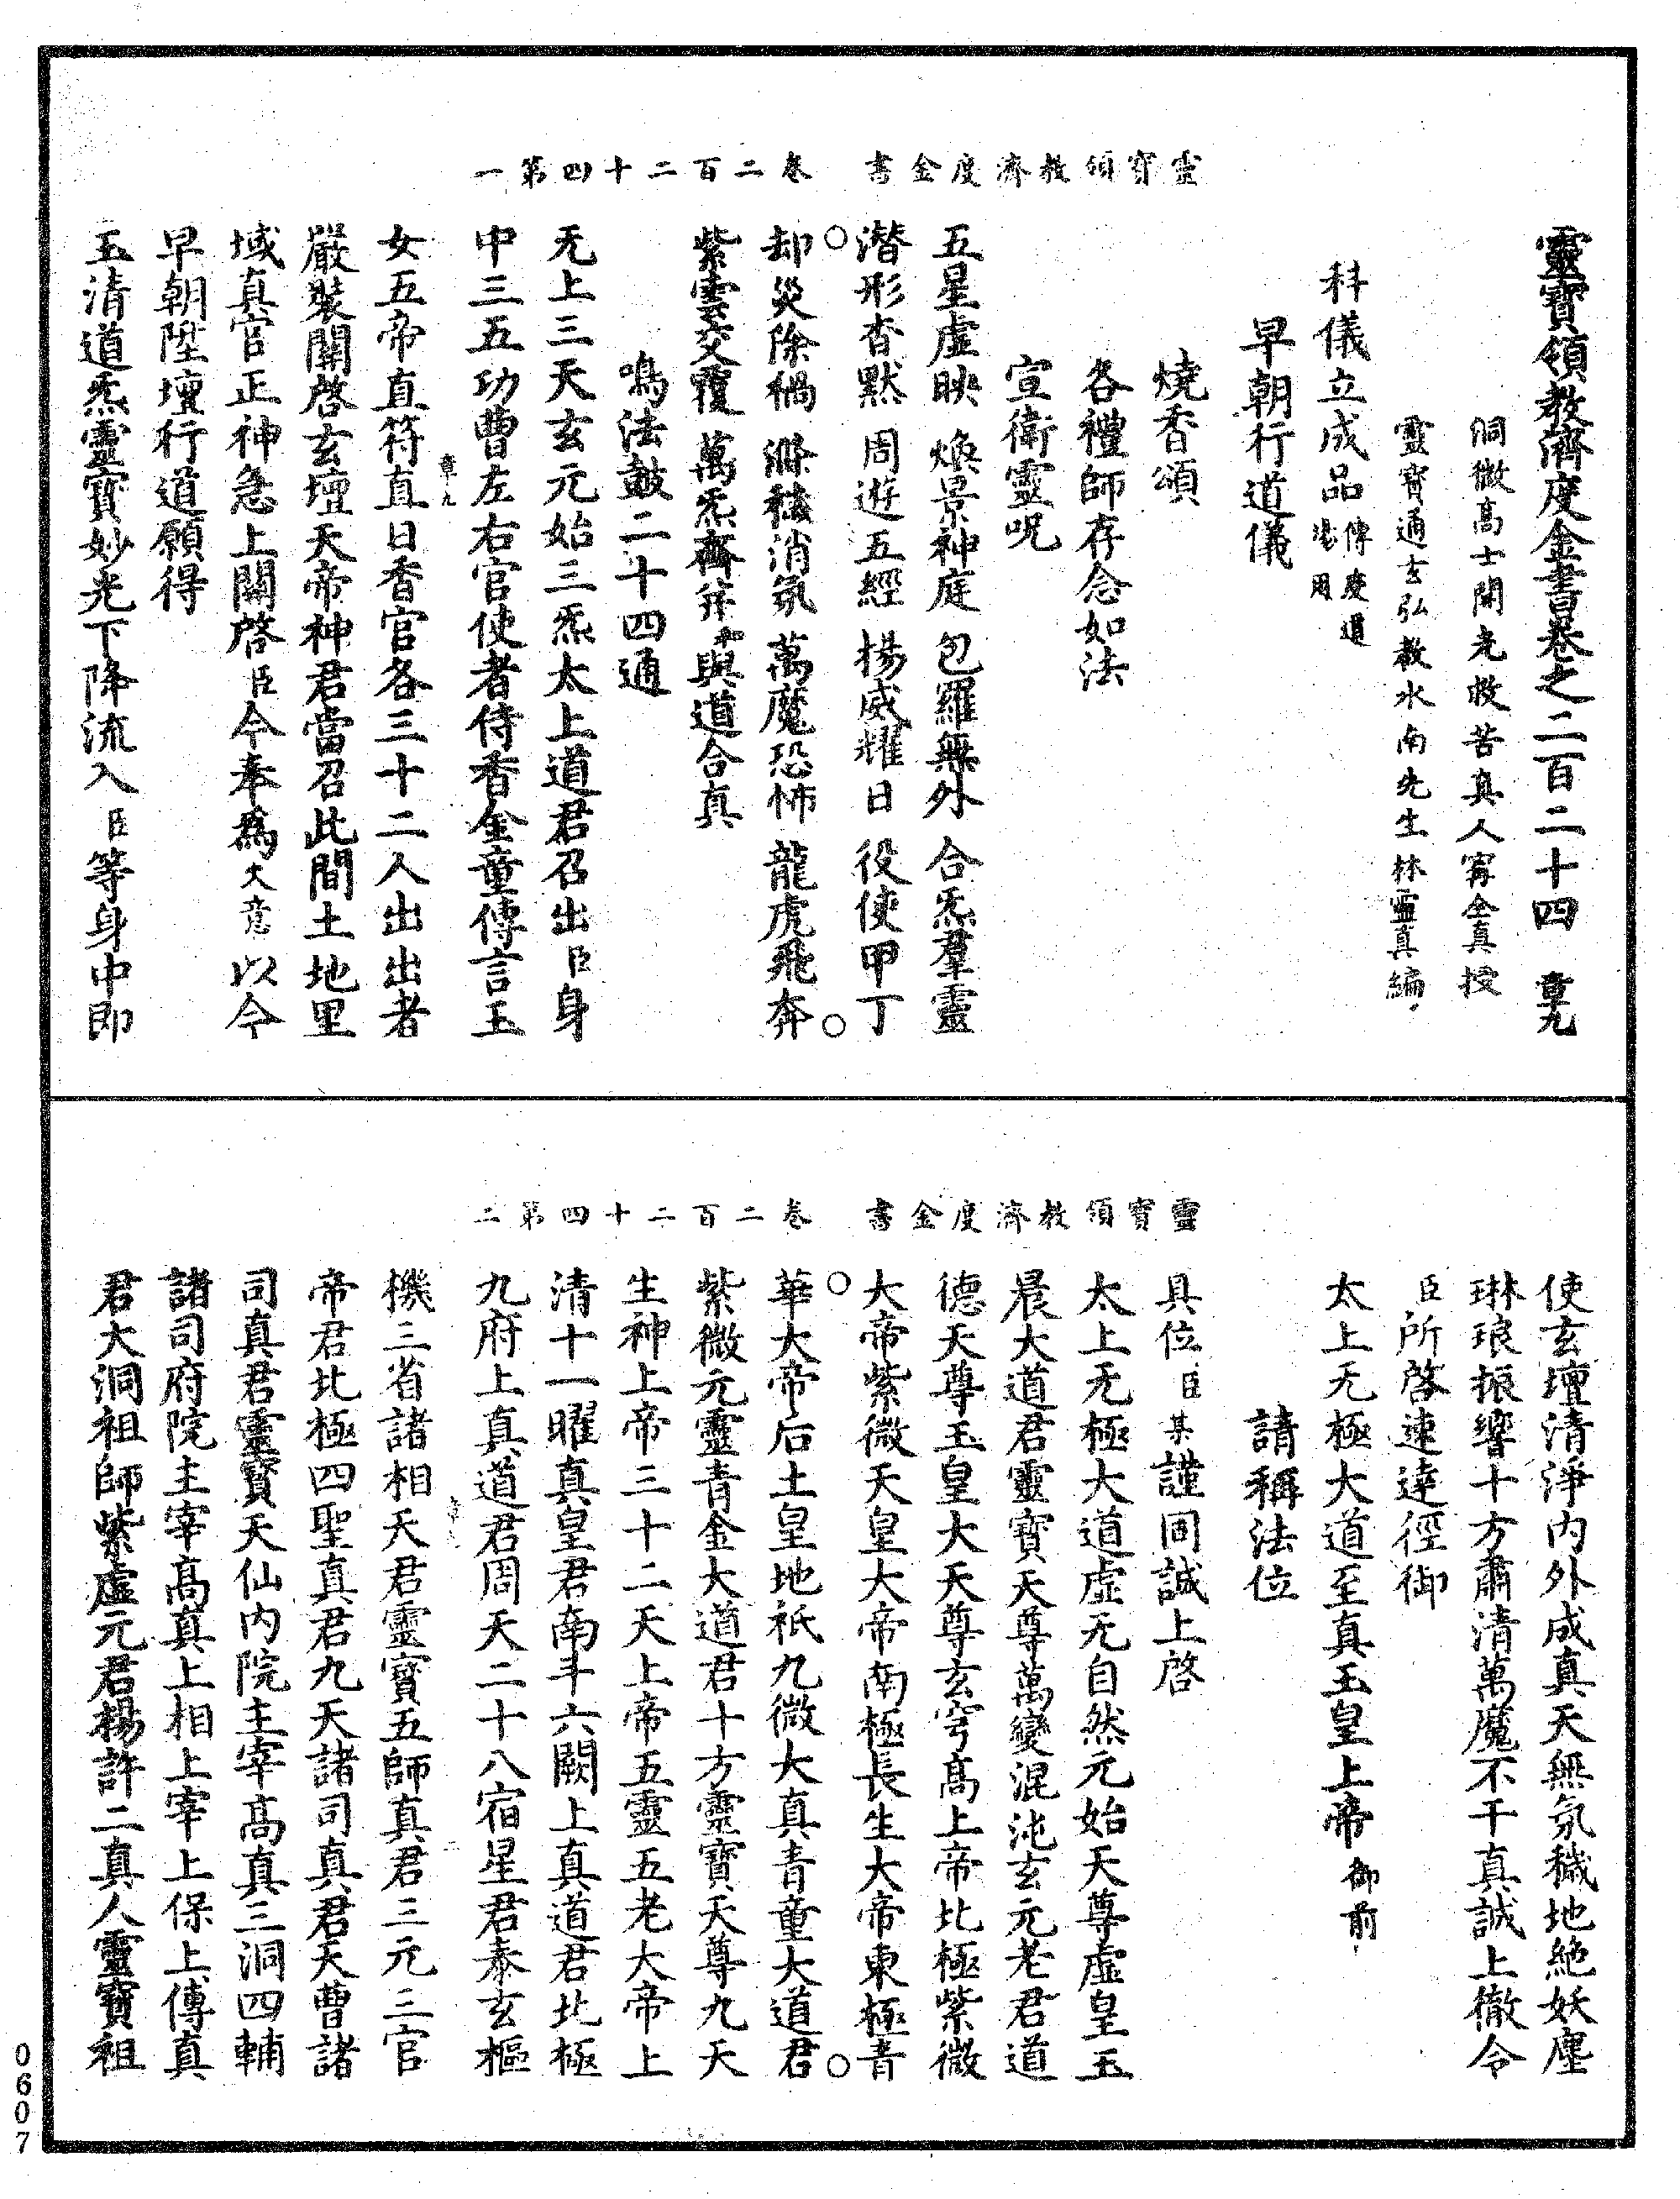 靈寶領教濟度金書卷之二百二十四　章九
洞微高士開光救苦真人甯全真授
靈寶通玄弘教水南先生林靈真編
科儀立成品傳度道場用
早朝行道儀
燒香頌
各禮師存念如法
宣衛靈呪
五星虛映　煥景神庭　包羅無外　合炁羣靈
潛形杳默　周遊五經　揚威耀日　役使甲丁
靈寶領教濟度金書　卷二百二十四第一
却災除禍　滌穢消氛　萬魔恐怖　龍虎飛奔
紫雲交覆　萬炁齊并和與道合真
鳴法鼓二十四通
无上三天玄元始三炁太上道君召出臣身
中三五功曹左右官使者侍香金童傳言玉
章九
女五帝直符直日香官各三十二人出出者
嚴裝關啓玄壇天帝神君當召此間土地里
域真官正神急上關啓臣今奉爲大意以今
早朝陞壇行道願得
玉清道炁靈寶妙光下降流入臣等身中即
使玄壇清淨內外成真天無氛穢地絕妖塵
琳琅振響十方肅清萬魔不干真誠上徹令
臣所啓速達徑御
太上无極大道至真玉皇上帝御前
請稱法位
具位臣某謹同誠上啓
太上无極大道虛无自然元始天尊虛皇玉
晨大道君靈寶天尊萬變混沌玄元老君道
德天尊玉皇大天尊玄穹高上帝北極紫微
大帝紫微天皇大帝南極長生大帝東極青
靈寶領教濟度金書　卷二百二十四第二
華大帝后土皇地祇九微大真青童大道君
紫微元靈青金大道君十方靈寶天尊九天
生神上帝三十二天上帝五靈五老大帝上
清十一曜真皇君南斗六闕上真道君北極
九府上真道君周天二十八宿星君泰玄樞
機三省諸相天君靈寶五師真君三元三官
帝君北極四聖真君九天諸司真君天曹諸
司真君靈寶天仙內院主宰高真三洞四輔
諸司府院主宰高真上相上宰上保上傳真
君大洞祖師紫虛元君楊許二真人靈寶祖
0607